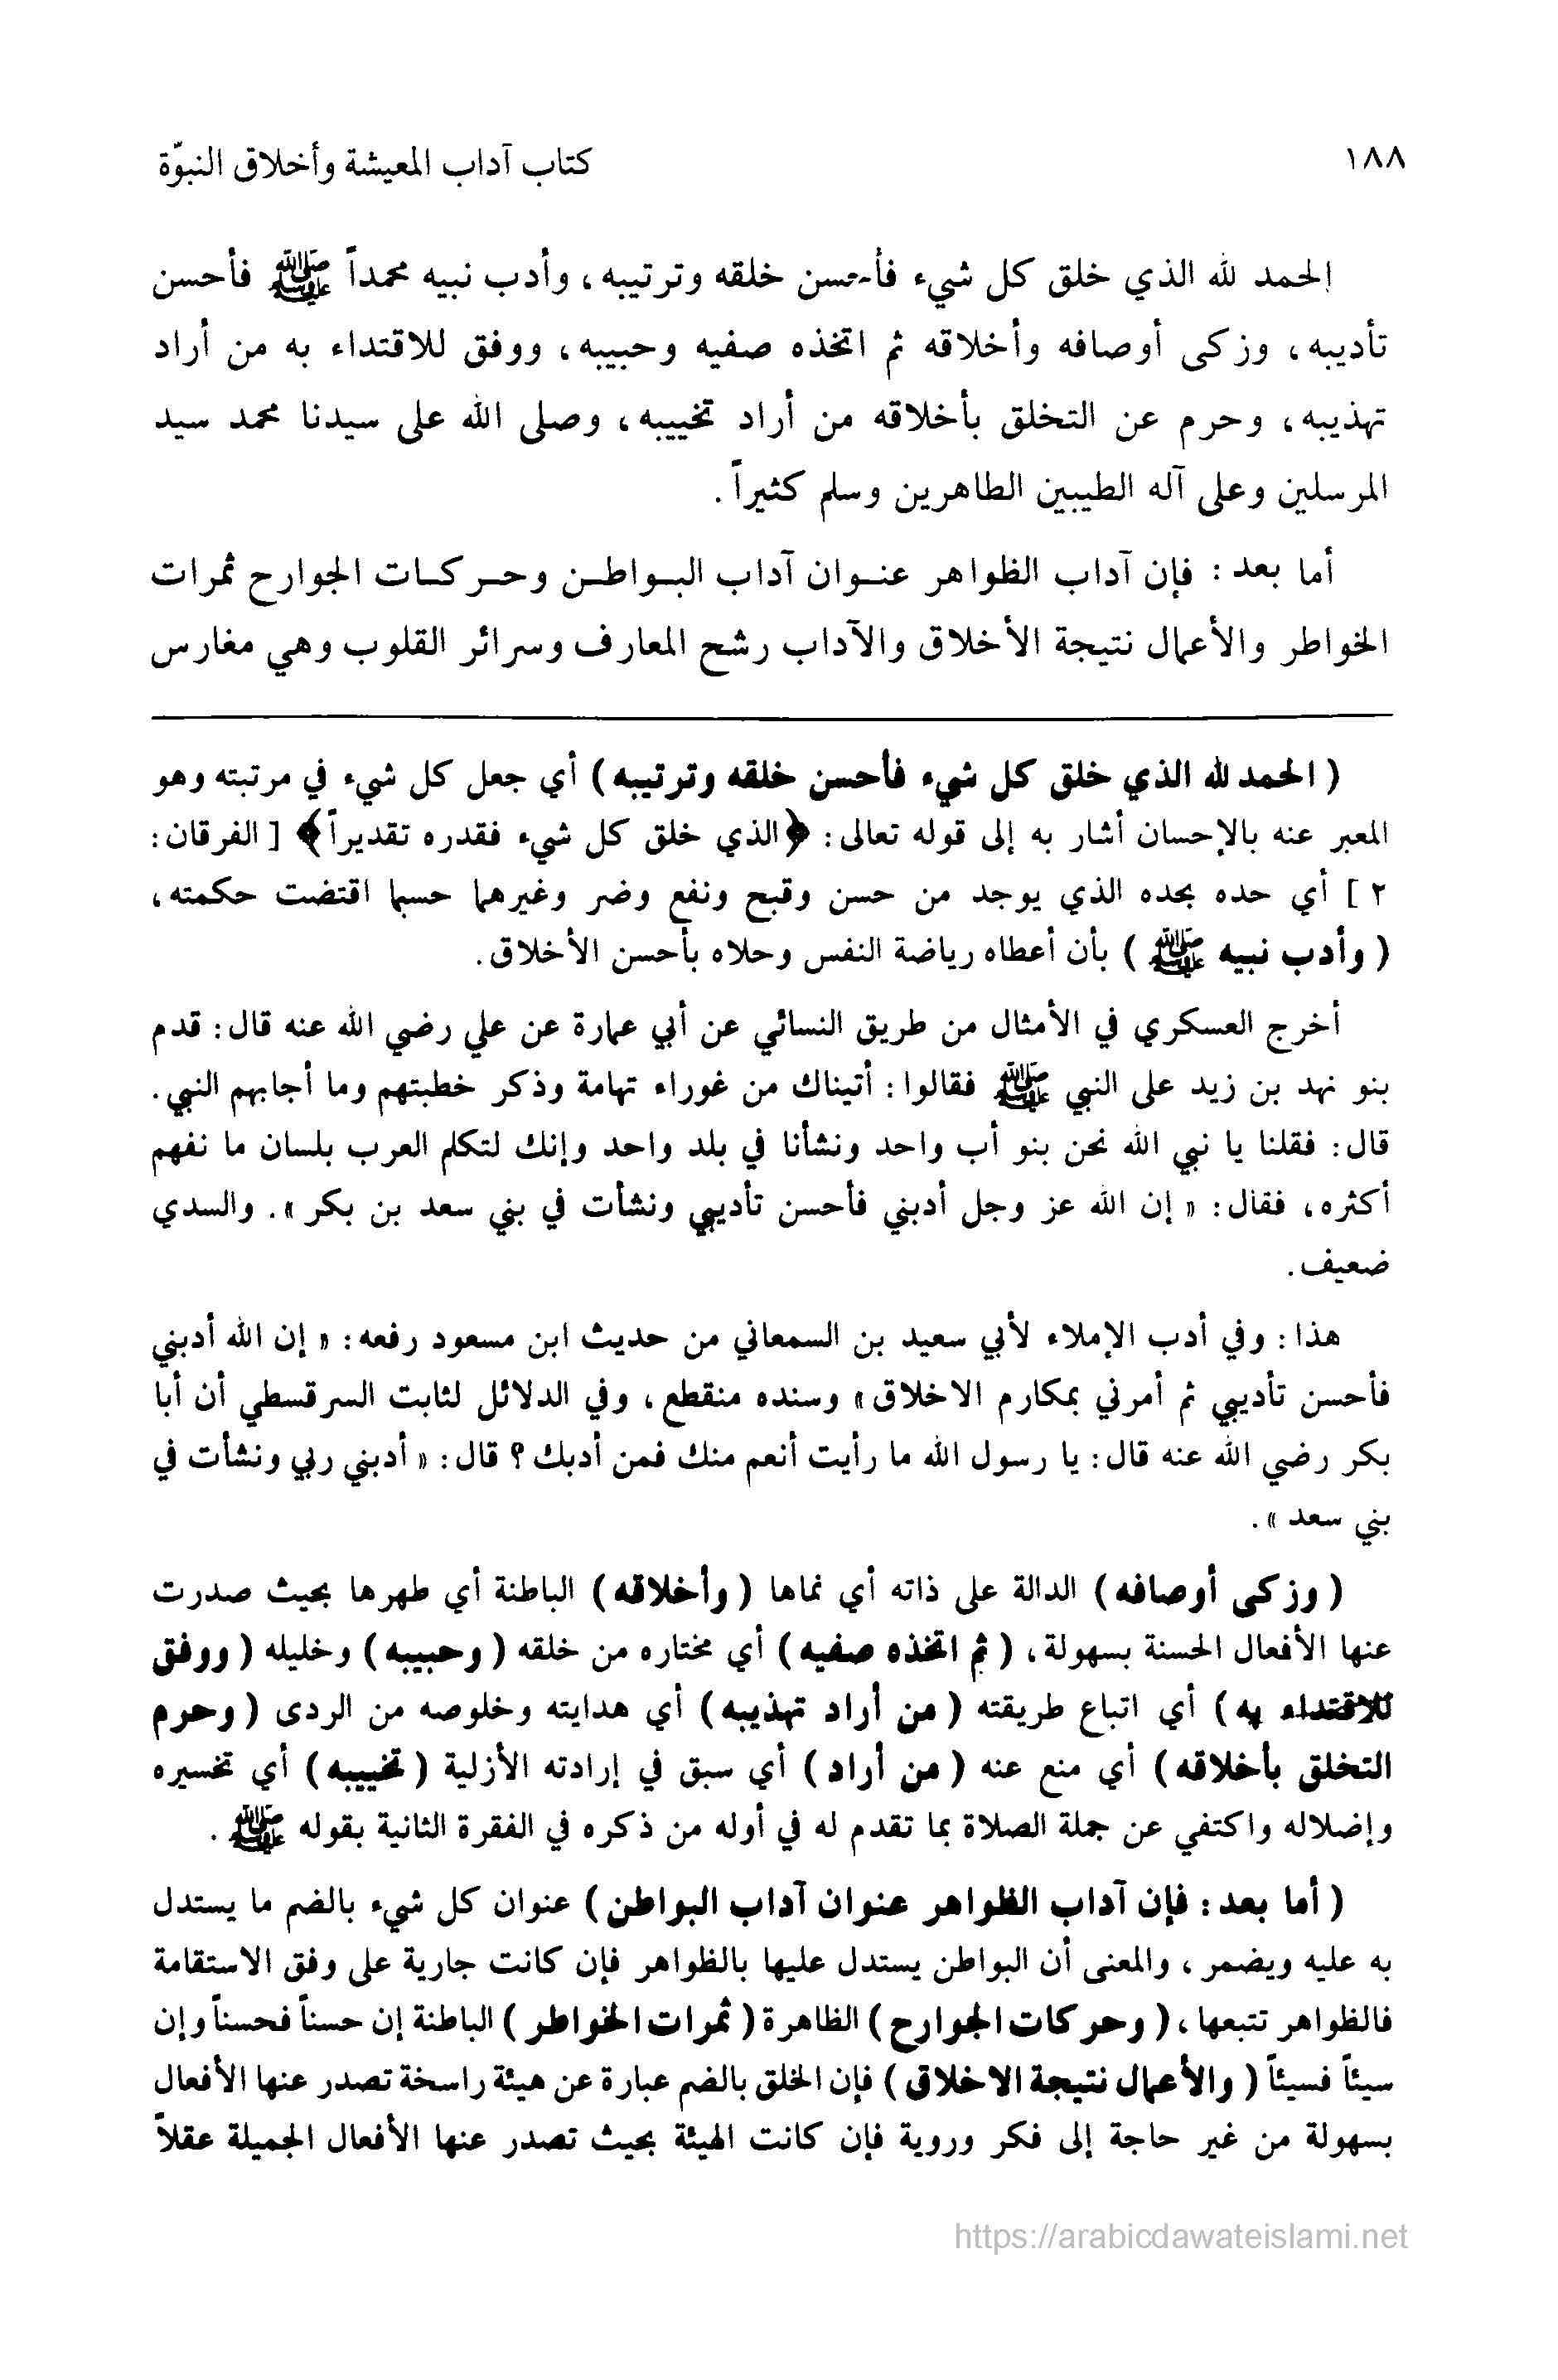 ١٨٨
كتاب آداب المعيشة وأخلاق النبوّة
الحمد لله الذي خلق كل شيء فأحسن خلقه وترتيبه، وأدب نبيه محمداً ﷺ فأحسن
تأديبه، وزكى أوصافه وأخلاقه ثم اتخذه صفيه وحبيبه، ووفق للاقتداء به من أراد
تهذيبه، وحرم عن التخلق بأخلاقه من أراد تخييبه، وصلى الله على سيدنا محمد سيد
المرسلين وعلى آله الطيبين الطاهرين وسلم كثيراً.
أما بعد: فإن آداب الظواهر عنوان آداب البواطن وحركات الجوارح ثمرات
الخواطر والأعمال نتيجة الأخلاق والآداب رشح المعارف وسرائر القلوب وهي مغارس
(الحمد لله الذي خلق كل شيء فأحسن خلقه وترتيبه) أي جعل كل شيء في مرتبته وهو
المعبر عنه بالإحسان أشار به إلى قوله تعالى: ﴿الذي خلق كل شيء فقدره تقديراً﴾ [الفرقان:
٢] أي حده بحده الذي يوجد من حسن وقبح ونفع وضر وغيرهما حسبما اقتضت حكمته،
(وأدب نبيه ﷺ) بأن أعطاه رياضة النفس وحلاه بأحسن الأخلاق.
أخرج العسكري في الأمثال من طريق النسائي عن أبي عمارة عن علي رضي الله عنه قال: قدم
بنو نهد بن زيد على النبي ﷺ فقالوا: أتيناك من غوراء تهامة وذكر خطبتهم وما أجابهم النبي.
قال: فقلنا يا نبي الله نحن بنو أب واحد ونشأنا في بلد واحد وإنك لتكلم العرب بلسان ما نفهم
أكثره، فقال: «إن الله عز وجل أدبني فأحسن تأديبي ونشأت في بني سعد بن بكر». والسدي
ضعيف.
هذا: وفي أدب الإملاء لأبي سعيد بن السمعاني من حديث ابن مسعود رفعه: «إن الله أدبني
فأحسن تأديبي ثم أمرني بمكارم الاخلاق» وسنده منقطع، وفي الدلائل لثابت السرقسطي أن أبا
بكر رضي الله عنه قال: يا رسول الله ما رأيت أنعم منك فمن أدبك؟ قال: «أدبني ربي ونشأت في
بني سعد».
(وزكى أوصافه) الدالة على ذاته أي نماها (وأخلاقه) الباطنة أي طهرها بحيث صدرت
عنها الأفعال الحسنة بسهولة، (ثم اتخذه صفيه) أي مختاره من خلقه (وحبيبه) وخليله (ووفق
للاقتداء به) أي اتباع طريقته (من أراد تهذيبه) أي هدايته وخلوصه من الردى (وحرم
التخلق بأخلاقه) أي منع عنه (من أراد) أي سبق في إرادته الأزلية (تخييبه) أي تخسيره
وإضلاله واكتفي عن جملة الصلاة بما تقدم له في أوله من ذكره في الفقرة الثانية بقوله ﷺ.
(أما بعد: فإن آداب الظواهر عنوان آداب البواطن) عنوان كل شيء بالضم ما يستدل
به عليه ويضمر، والمعنى أن البواطن يستدل عليها بالظواهر فإن كانت جارية على وفق الاستقامة
فالظواهر تتبعها، (وحركات الجوارح) الظاهرة (ثمرات الخواطر) الباطنة إن حسناً فحسناً وإن
سيئاً فسيئاً (والأعمال نتيجة الاخلاق) فإن الخلق بالضم عبارة عن هيئة راسخة تصدر عنها الأفعال
بسهولة من غير حاجة إلى فكر وروية فإن كانت الهيئة بحيث تصدر عنها الأفعال الجميلة عقلاً
https://arabicdawateislami.net